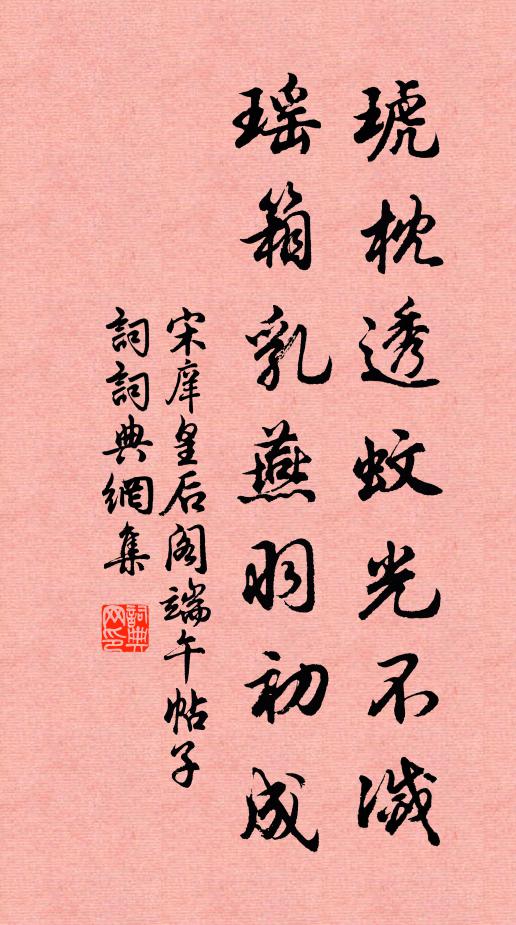 琥枕透蚊光不滅
瑶箱乳燕羽初成
宋庠皇后阁端午帖子
詞詞典網集
詞典网印